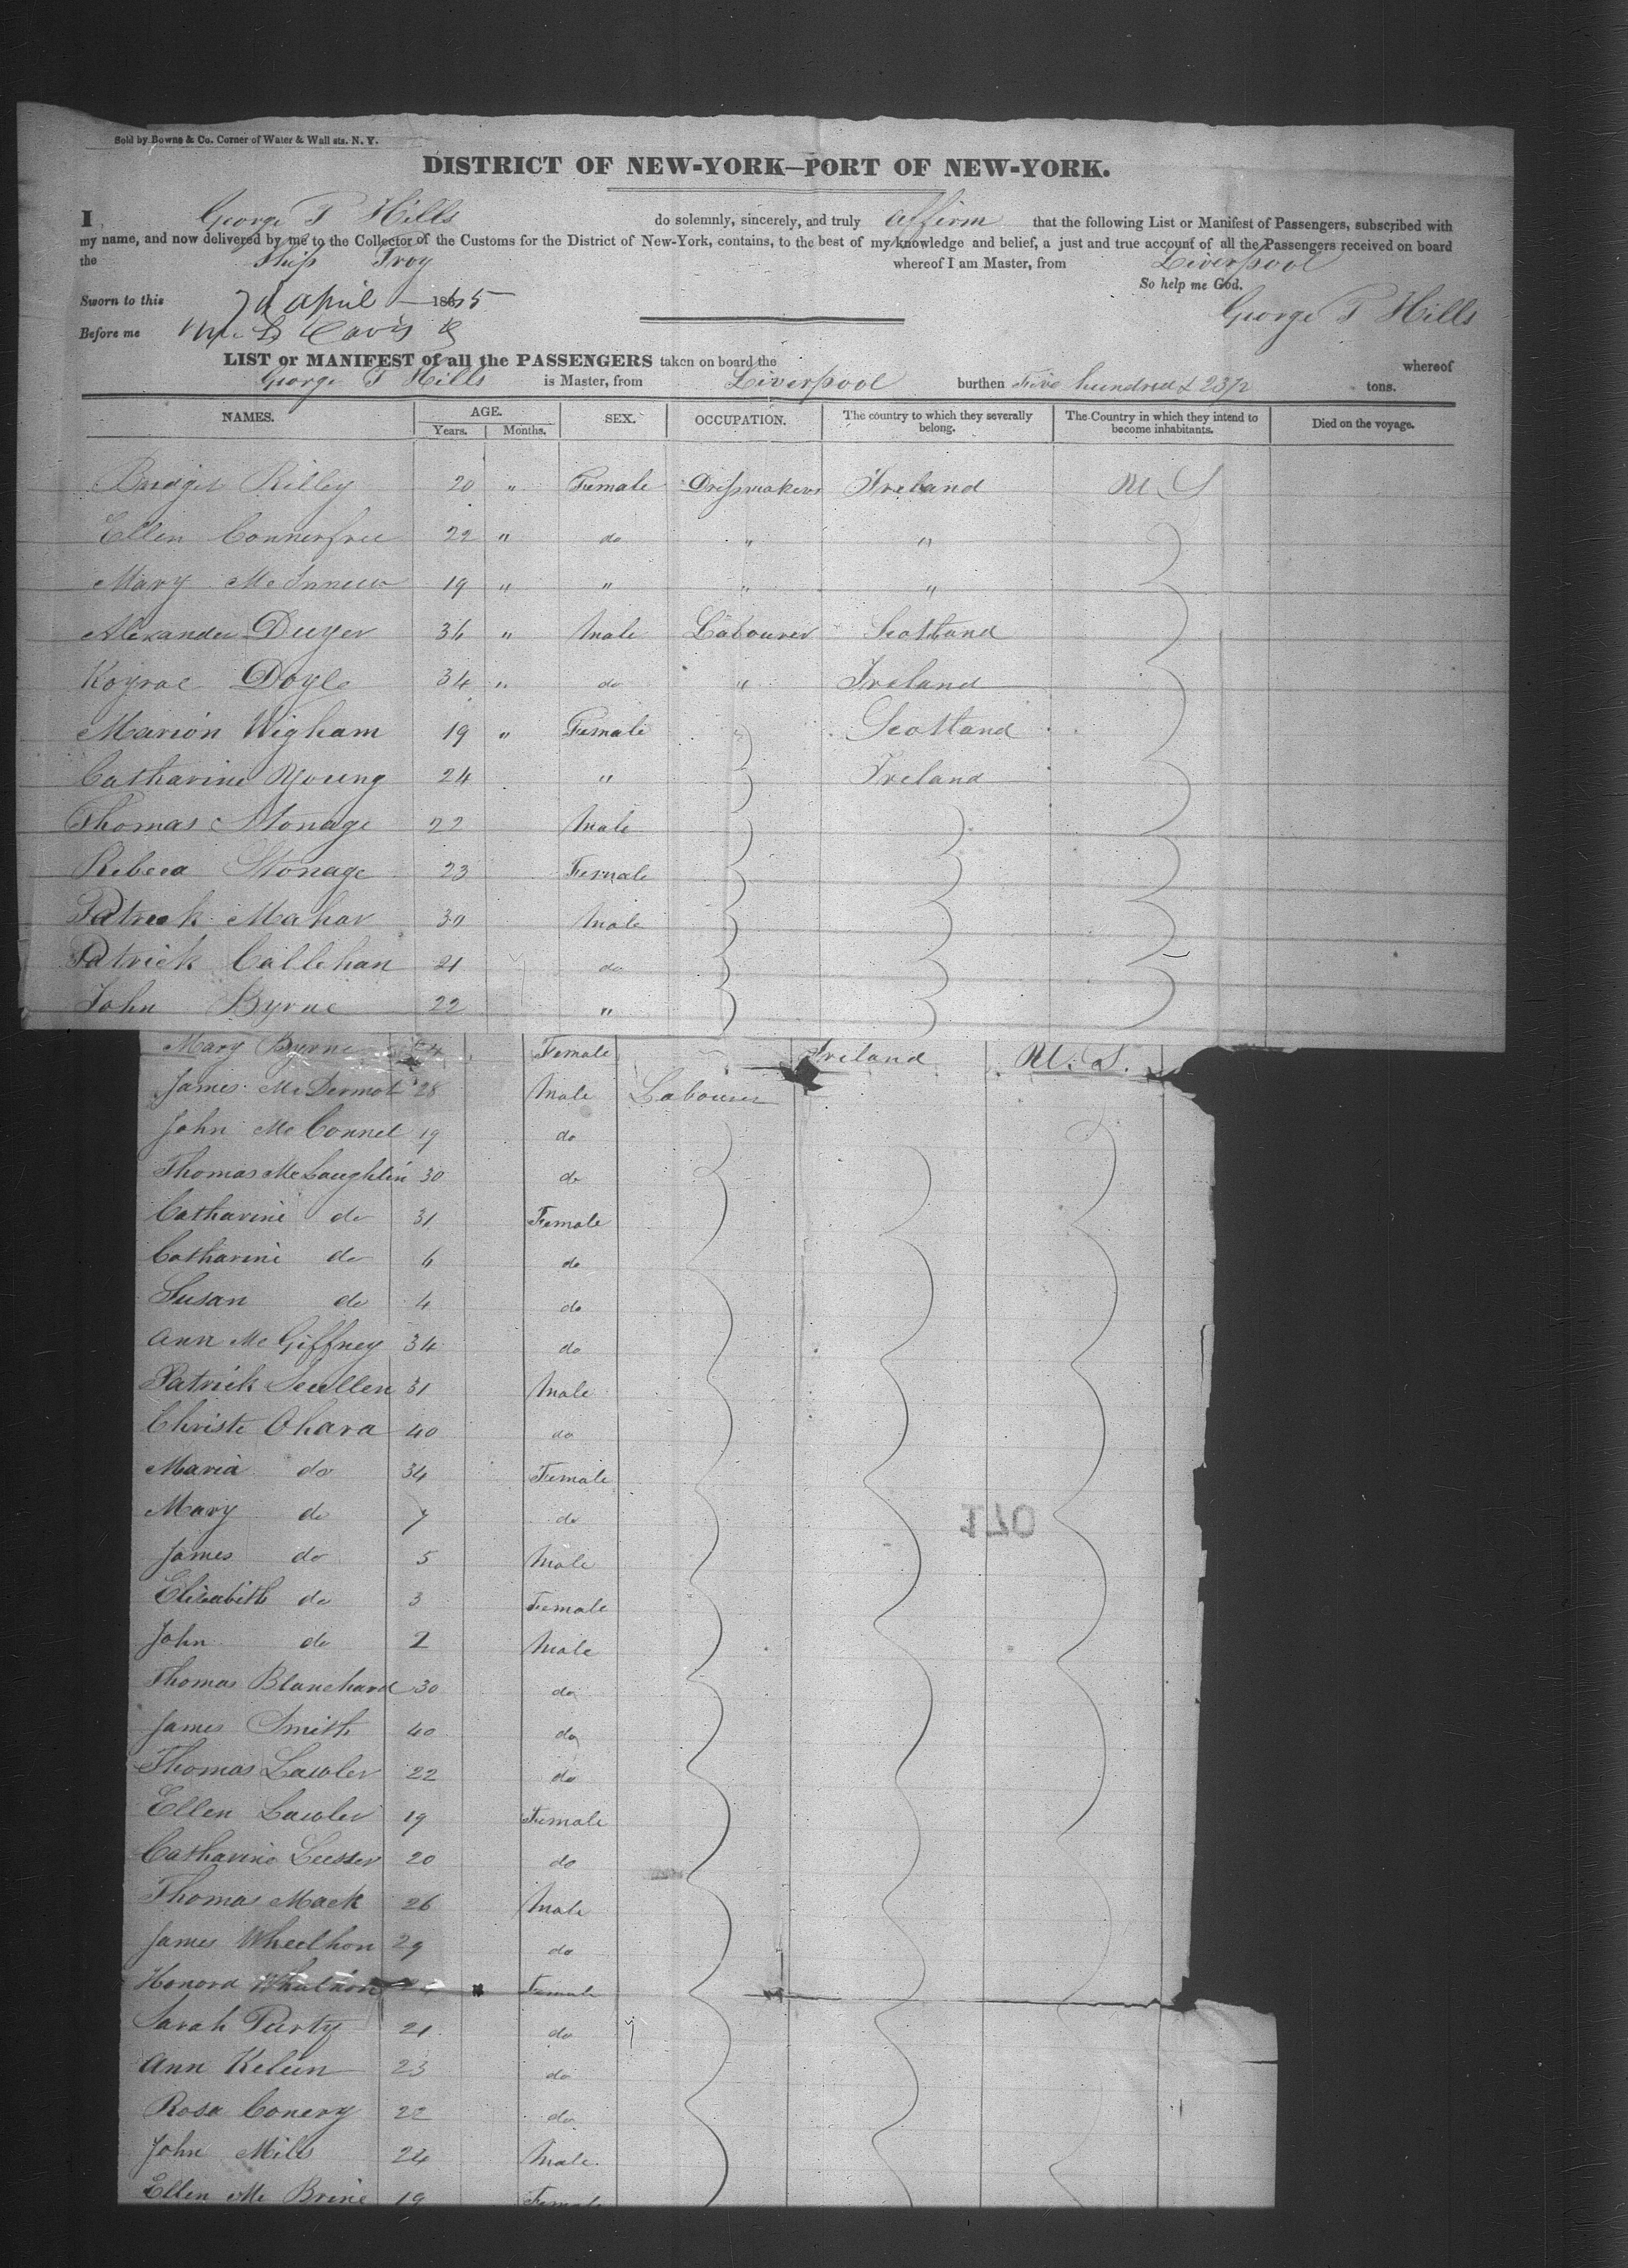 Sold by Bowne & Co. Corner of Water & Wall sts. N. Y.
DISTRICT OF NEW-YORK—PORT OF NEW-YORK.
I, George T Hills do solemnly, sincerely, and truly affirm that the following List or Manifest of Passengers, subscribed with
my name, and now delivered by me to the Collector of the Customs for the District of New-York, contains, to the best of my knowledge and belief, a just and true account of all the Passengers received on board
the Ship Troy whereof I am Master, from Liverpool
So help me God.
Sworn to this 7th April 1865
George T Hills
Before me
LIST or MANIFEST of all the PASSENGERS taken on board the whereof
George T Hills is Master, from Liverpool burthen Five hundred & 23/2 tons.
NAMES. AGE. Years. Months. SEX. OCCUPATION. The country to which they severally belong. The Country in which they intend to become inhabitants. Died on the voyage.
Bridget Rilley 20 " Female Dressmakers Ireland U. S
Ellen 22 " do " "
Mary 19 " " " "
Alexander Dwyer 36 " Male Labourer Scotland
Doyle 34 " do " Ireland
Marion Wigham 19 " Female " Scotland
Catharine Young 24 " Ireland
Thomas Stonage 22 Male
Rebeca Stonage 23 Female
Patrick Mahar 30 Male
Patrick Callehan 21 do
John Byrne 22 "
Mary Byrne 24 Female Ireland U. S.
James McDermot 28 Male Labourer
John McConnel 19 do
Thomas McLaughlin 30 do
Catharine do 31 Female
Catharine do 6 do
Susan do 4 do
Ann McGiffney 34 do
Patrick Scullen 31 Male
Christe Ohara 40 do
Maria do 34 Female
Mary do 7 do
James do 5 Male
Elisabeth do 3 Female
170
John do 2 Male
Thomas Blanchard 30 do
James Smith 40 do
Thomas Lawler 22 do
Ellen Lawler 19 Female
Catharine 20 do
Thomas Mack 26 Male
James Wheelhon 29 do
Honora Female
Sarah Purty 21 do
Ann 23 do
Rosa Conery 22 do
John Mills 24 Male
Ellen Mc Brine 19 Female